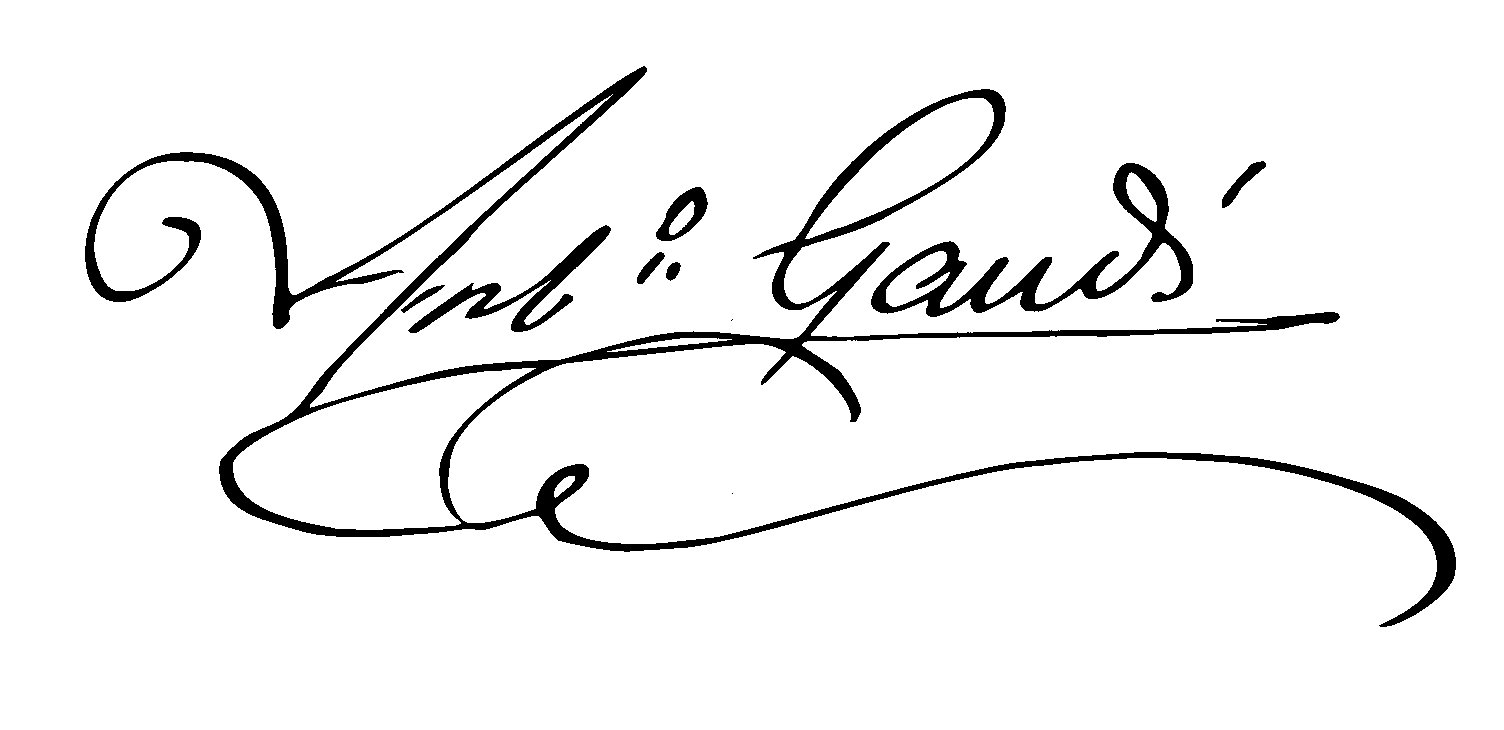 Antº Gaudí